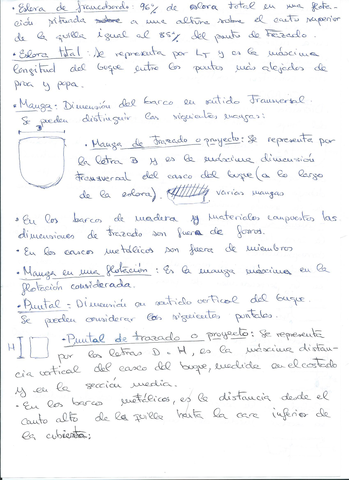 • Eslora de francobordo: 96% de eslora total en una flota-
ción situada a una altura sobre el canto superior
de la quilla igual al 85% del punto de trazado.
• Eslora total: Se representa por LT y es la máxima
longitud del buque entre los puntos más alejados de
proa y popa.
• Manga: Dimensión del barco en sentido Transversal.
Se pueden distinguir las siguientes mangas:
• Manga de trazado o proyecto: Se representa por
la letra B y es la máxima dimensión
transversal del casco del buque (a lo largo
de la eslora). varias mangas
• En los barcos de madera y materiales compuestos las
dimensiones de trazado son fuera de forros.
• En los cascos metálicos son fuera de miembros
• Manga en una flotación: Es la manga máxima en la
flotación considerada.
• Puntal: Dimensión en sentido vertical del buque.
Se pueden considerar los siguientes puntales.
H
• Puntal de trazado o proyecto: Se representa
por las letras D - H, es la máxima distan-
cia vertical del casco del buque, medida en el costado
y en la sección media.
• En los barcos metálicos, es la distancia desde el
canto alto de la quilla hasta la cara inferior de
la cubierta;